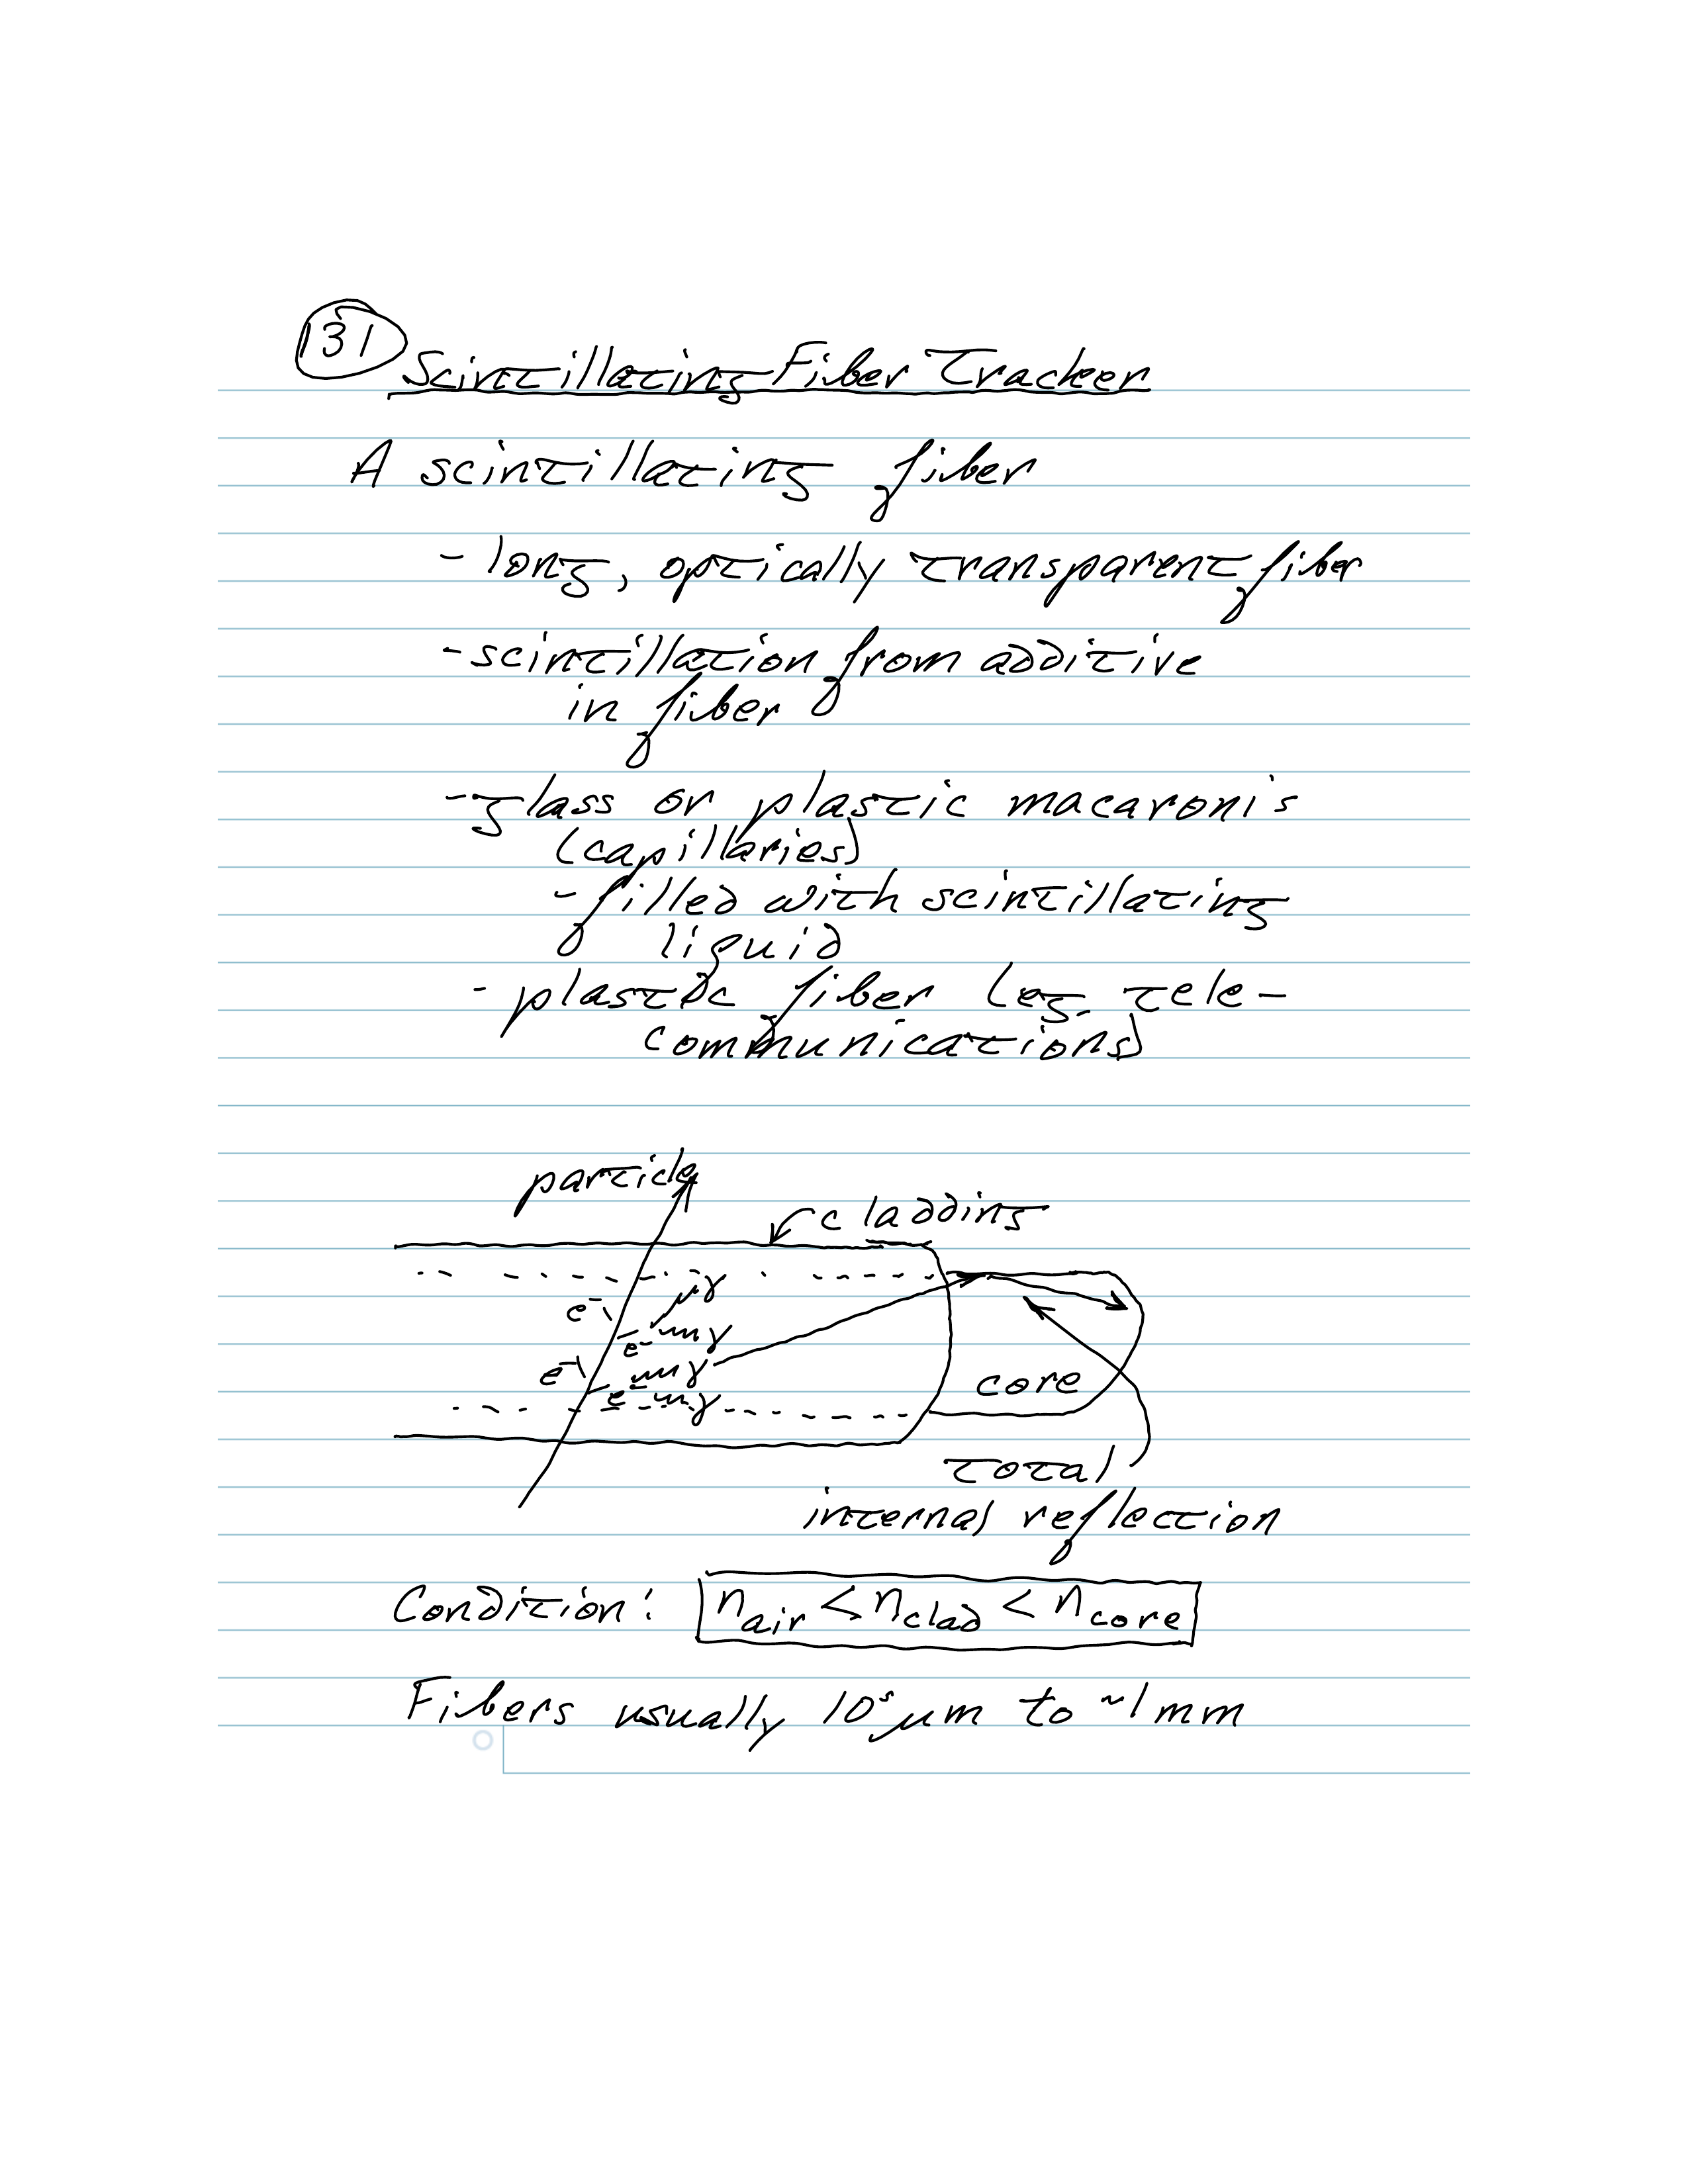 131
Scintillating Fiber Tracker
A scintillating fiber
- long, optically transparent fiber
- scintillation from additive
in fiber
- glass or plastic macaroni's
(capillaries)
- filled with scintillating
liquid
- plastic fiber (eg. tele-
communications)
particle
cladding
γ
e⁻
e⁻ γ
e⁻ γ
e⁻ γ
core
total
internal reflection
Condition: n_air < n_clad < n_core
Fibers usually 10ˢ μm to ~1 mm